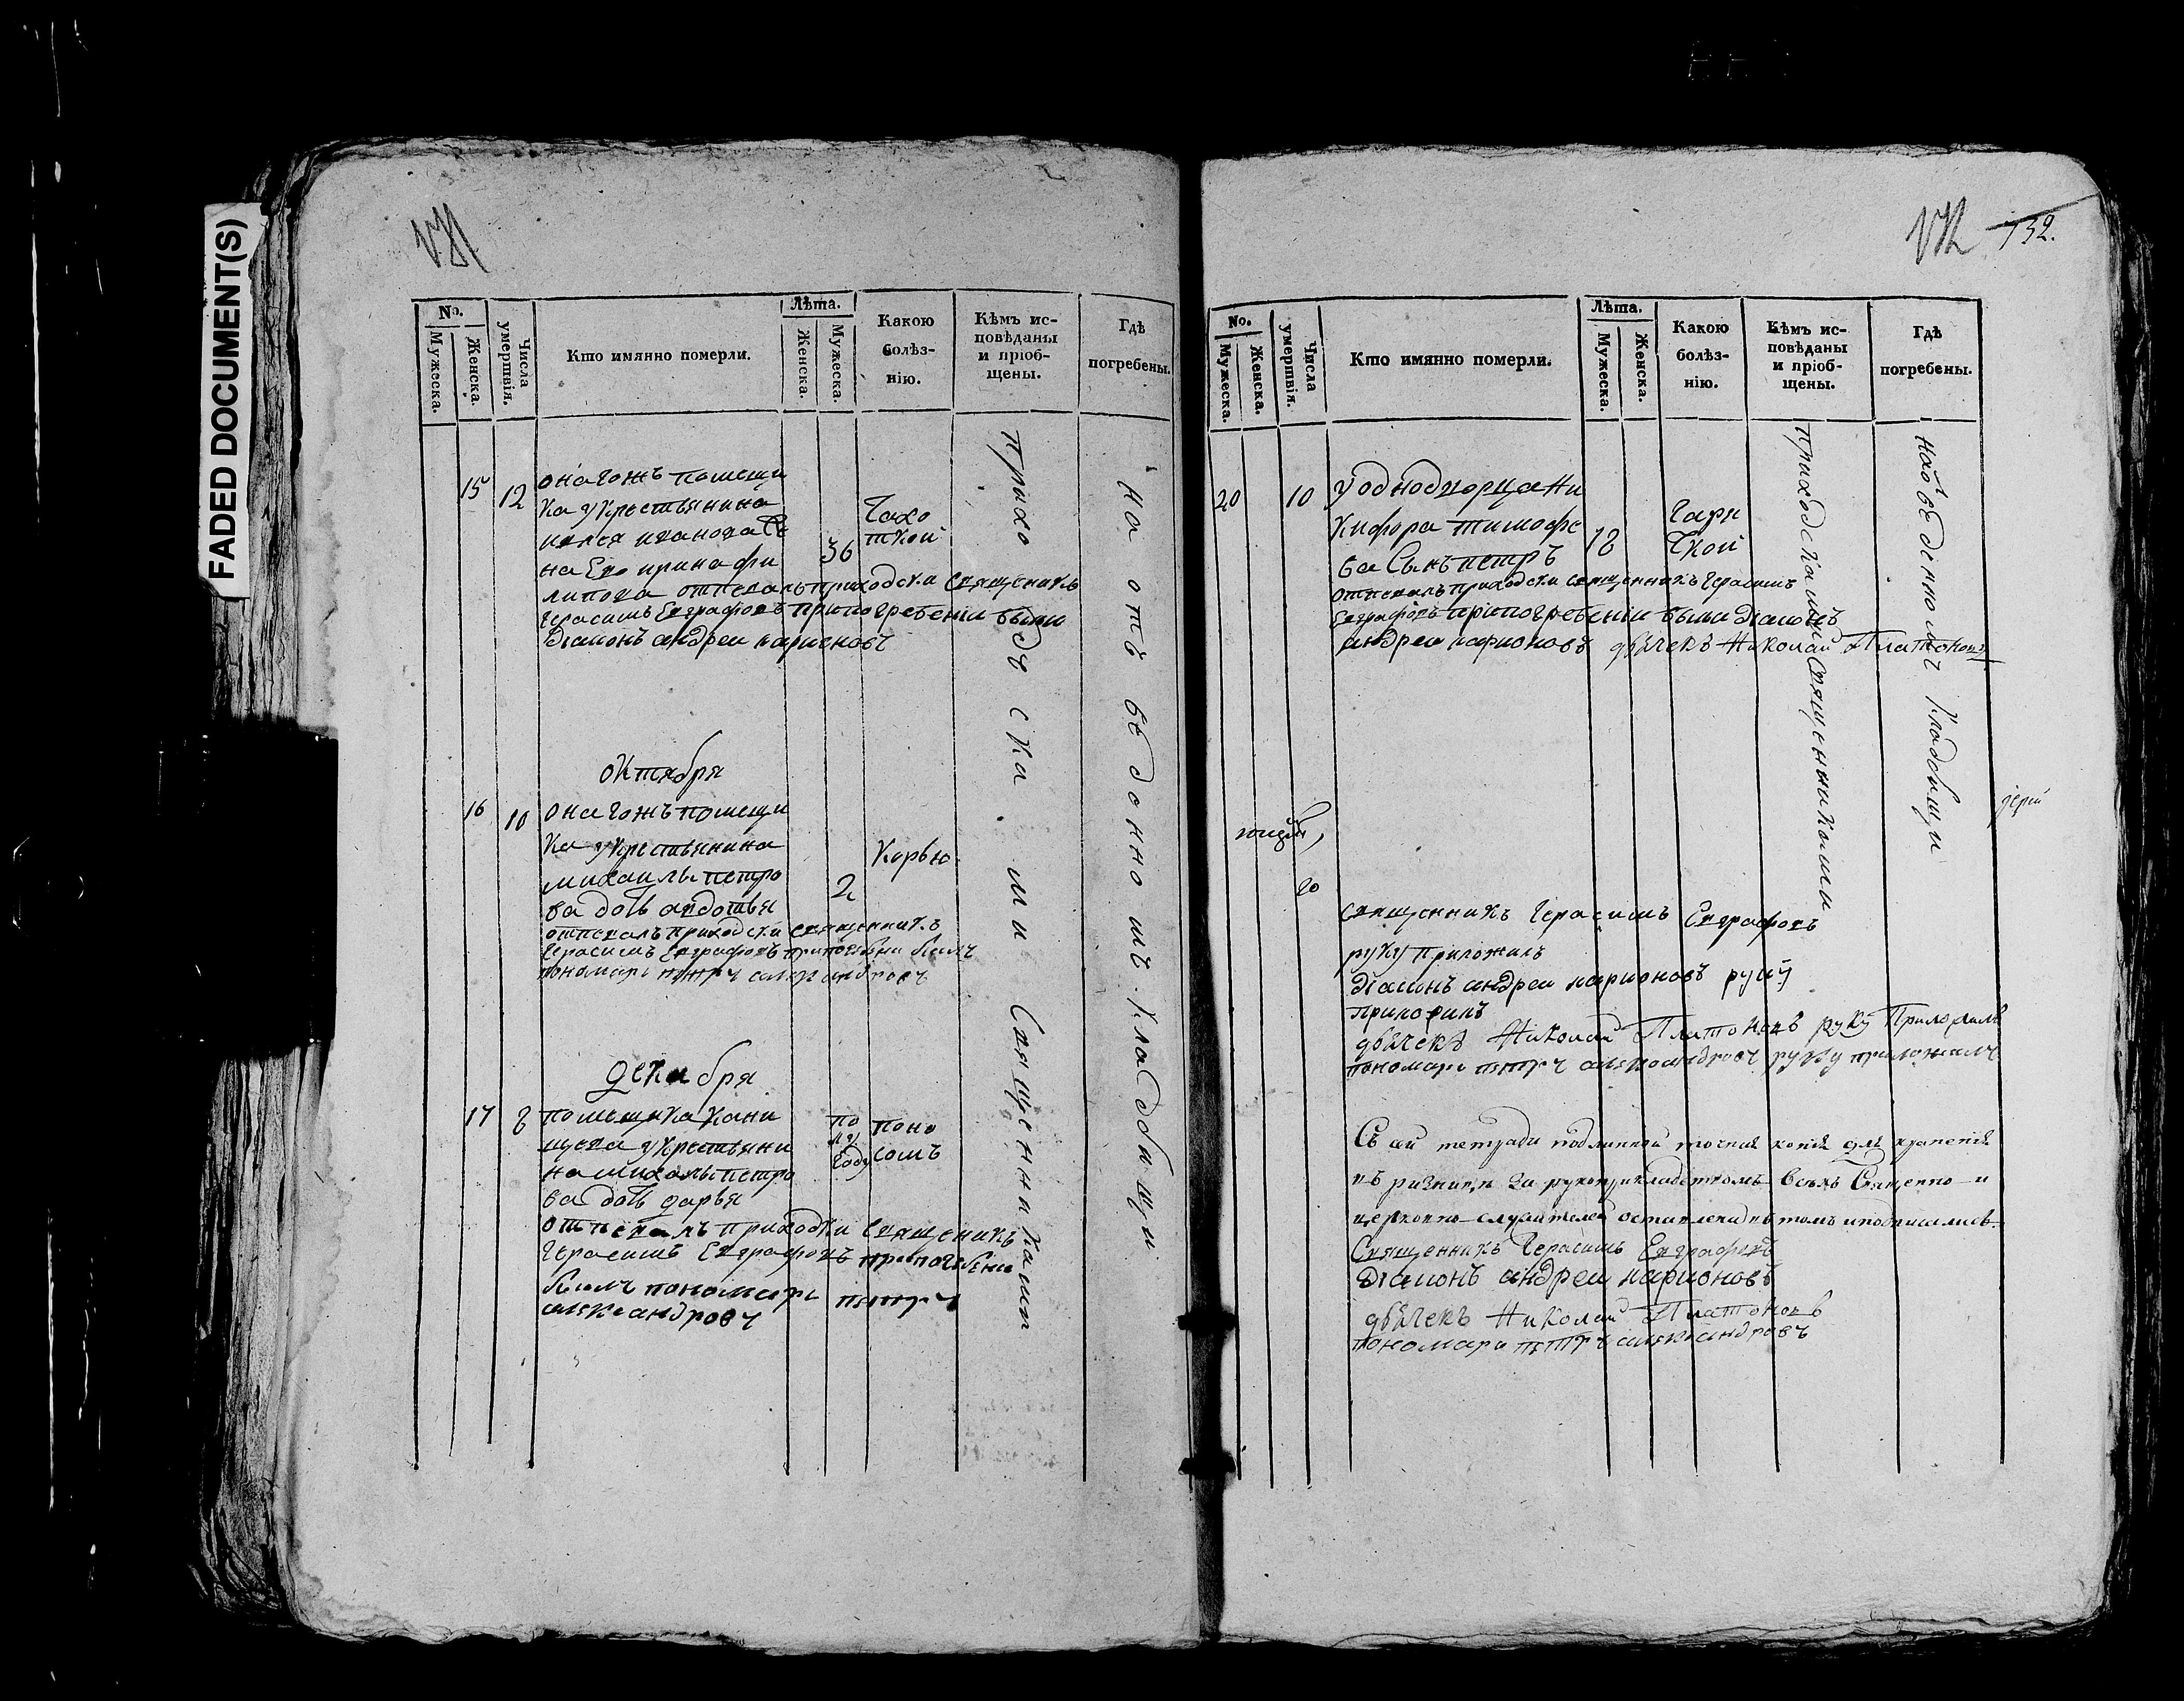 FADED DOCUMENT(S)
No.
Мужеска.
Женска.
Числа умертвія.
Кто имянно померли.
Лѣта.
Женска.
Мужеска.
Какою болѣз-нію.
Кѣмъ ис-повѣданы и пріоб-щены.
Гдѣ погребены.
15 12 онагожъ помещи
ка укрестьянина
36
Чахо
ткой
на Ево ирина фи
липова отпевалъ приходски священникъ
Герасимъ Евграфовъ припогребении были
діаконъ андреи ларионовъ
октября
16 10 онагожъ помещи
ка укрестьянина
Корью
михаилы петро
2
ва дочь авдотья
отпевалъ приходски священникъ
Герасимъ Евграфовъ
пономарь петръ александровъ
декабря
17 8 помещика Кани
щева укрестьяни
по
лу
году
поно
сомъ
на михаилы петро
ва дочь дарья
отпевалъ приходски священникъ
Герасимъ Евграфовъ
былъ пономарь петръ
александровъ
приходскими Священниками
на отведенномъ кладбищи
132.
No.
Мужеска.
Женска.
Числа умертвія.
Кто имянно померли.
Лѣта.
Мужеска.
Женска.
Какою болѣз-нію.
Кѣмъ ис-повѣданы и пріоб-щены.
Гдѣ погребены.
20 10 у однодворца Ни
кифора тимофе
18
Гаря
чкой
ва Сынъ петръ
отпевалъ приходски священникъ Герасимъ
Евграфовъ припогребеніи были діаконъ
андреи ларионовъ дьячекъ Николай Платоновъ
приходскими Священниками
кладбищи
20
священникъ Герасимъ Евграфовъ
руку приложилъ
діаконъ андреи ларионовъ руку
приложилъ
дьячекъ Николай Платоновъ руку Приложилъ
пономарь петръ александровъ руку приложилъ
Съ сей тетради подлинной точная копія для храненія
въ ризницѣ за рукоприкладствомъ всехъ Священно и
церковно служителей оставлена въ томъ иподписались
Священникъ Герасимъ Евграфовъ
діаконъ андреи ларионовъ
дьячекъ Николай Платоновъ
пономарь петръ александровъ